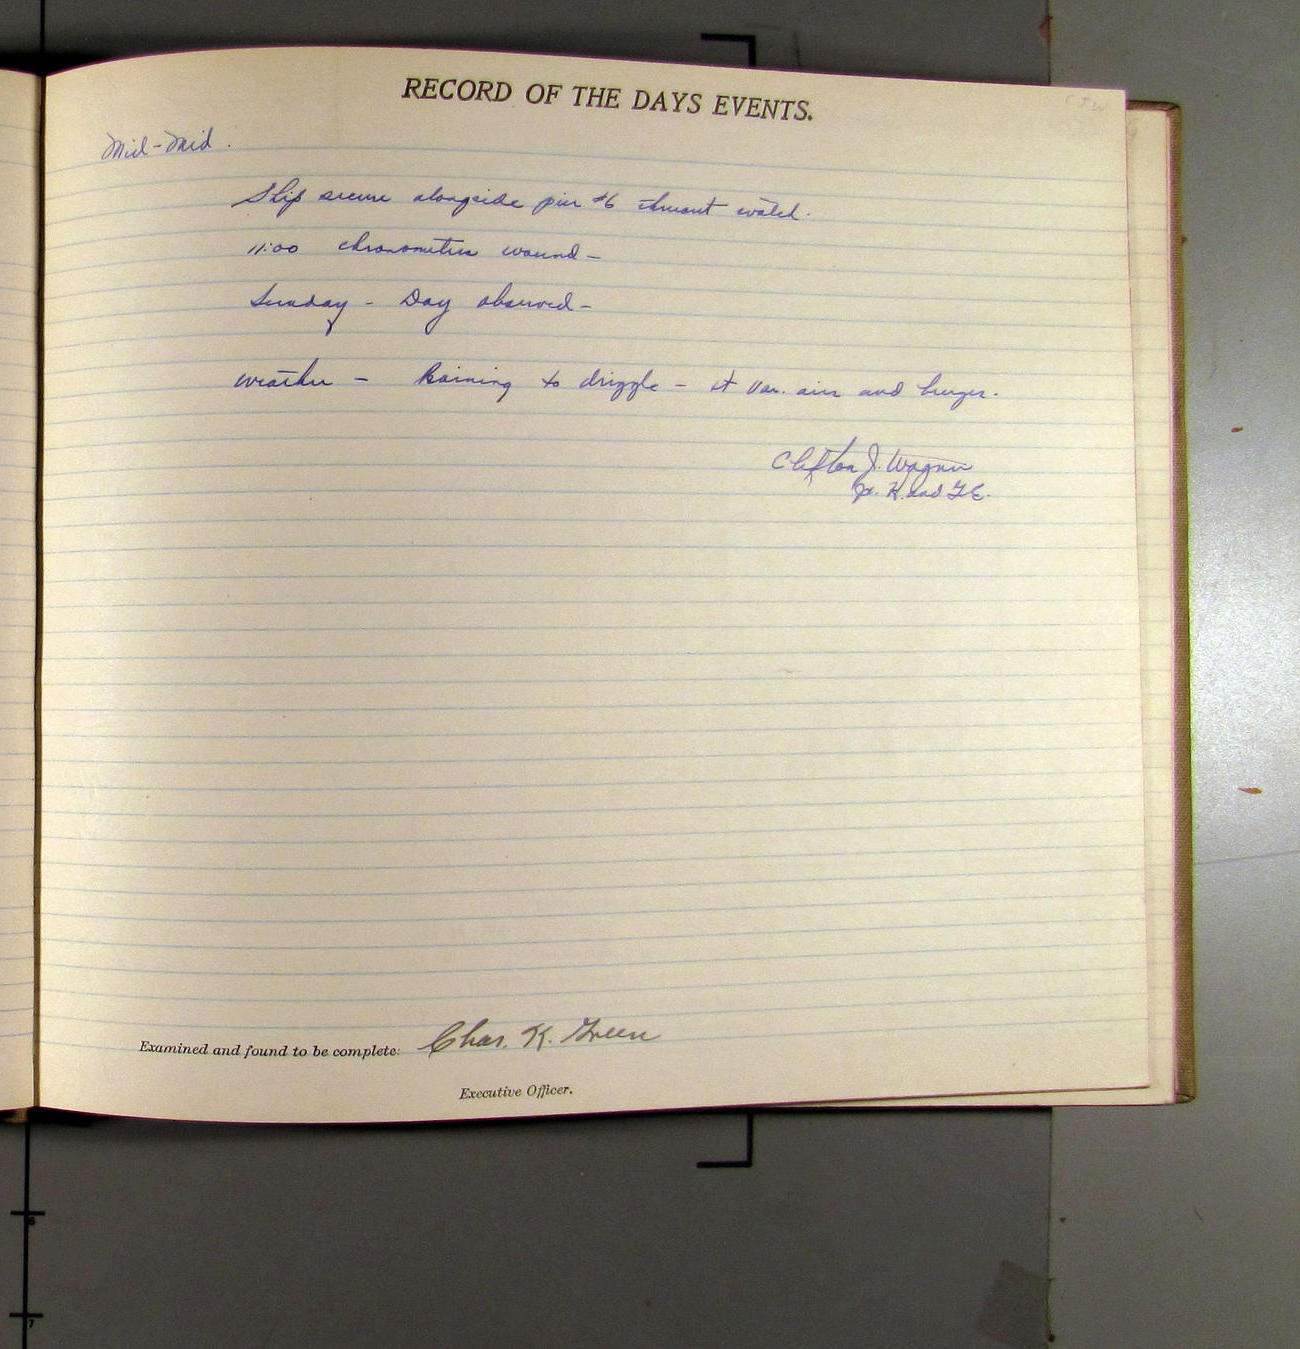 C J W
RECORD OF THE DAYS EVENTS.
Mid-Mid.
Ship secure alongside pier #6 watch.
11:00 chronometers wound-
Sunday - Day observed-
Weather - Raining to drizzle - lt var. airs and breezes.
Clifton J. Wagner
Jr. H. and G.E.
Examined and found to be complete: Chas. K. Green
Executive Officer.
6
7